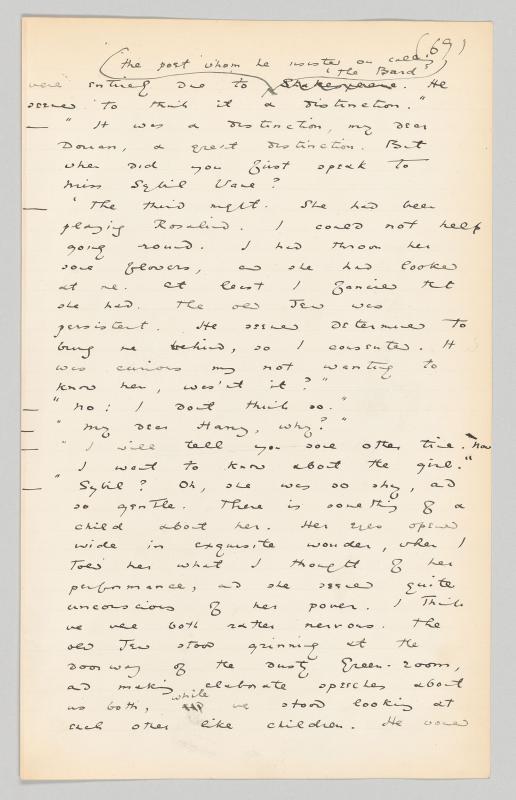 (69)
(the poet whom he insisted on calling
"The Bard")
were entirely due to Shakespeare. He
seemed to think it a distinction."
— "It was a distinction, my dear
Dorian, a great distinction. But
when did you first speak to
Miss Sybil Vane?
— "The third night. She had been
playing Rosalind. I could not help
going round. I had thrown her
some flowers, and she had looked
at me. At least I fancied that
she had. The old Jew was
persistent. He seemed determined to
bring me behind, so I consented. It
was curious my not wanting to
know her, wasn't it?"
— "No: I don't think so."
— "My dear Harry, why?"
— "I will tell you some other time. Now
I want to know about the girl."
— "Sybil? Oh, she was so shy, and
so gentle. There is something of a
child about her. Her eyes opened
wide in exquisite wonder, when I
told her what I thought of her
performance, and she seemed quite
unconscious of her power. I think
we were both rather nervous. The
old Jew stood grinning at the
doorway of the dusty Green-room,
and making elaborate speeches about
us both, while we stood looking at
each other like children. He would